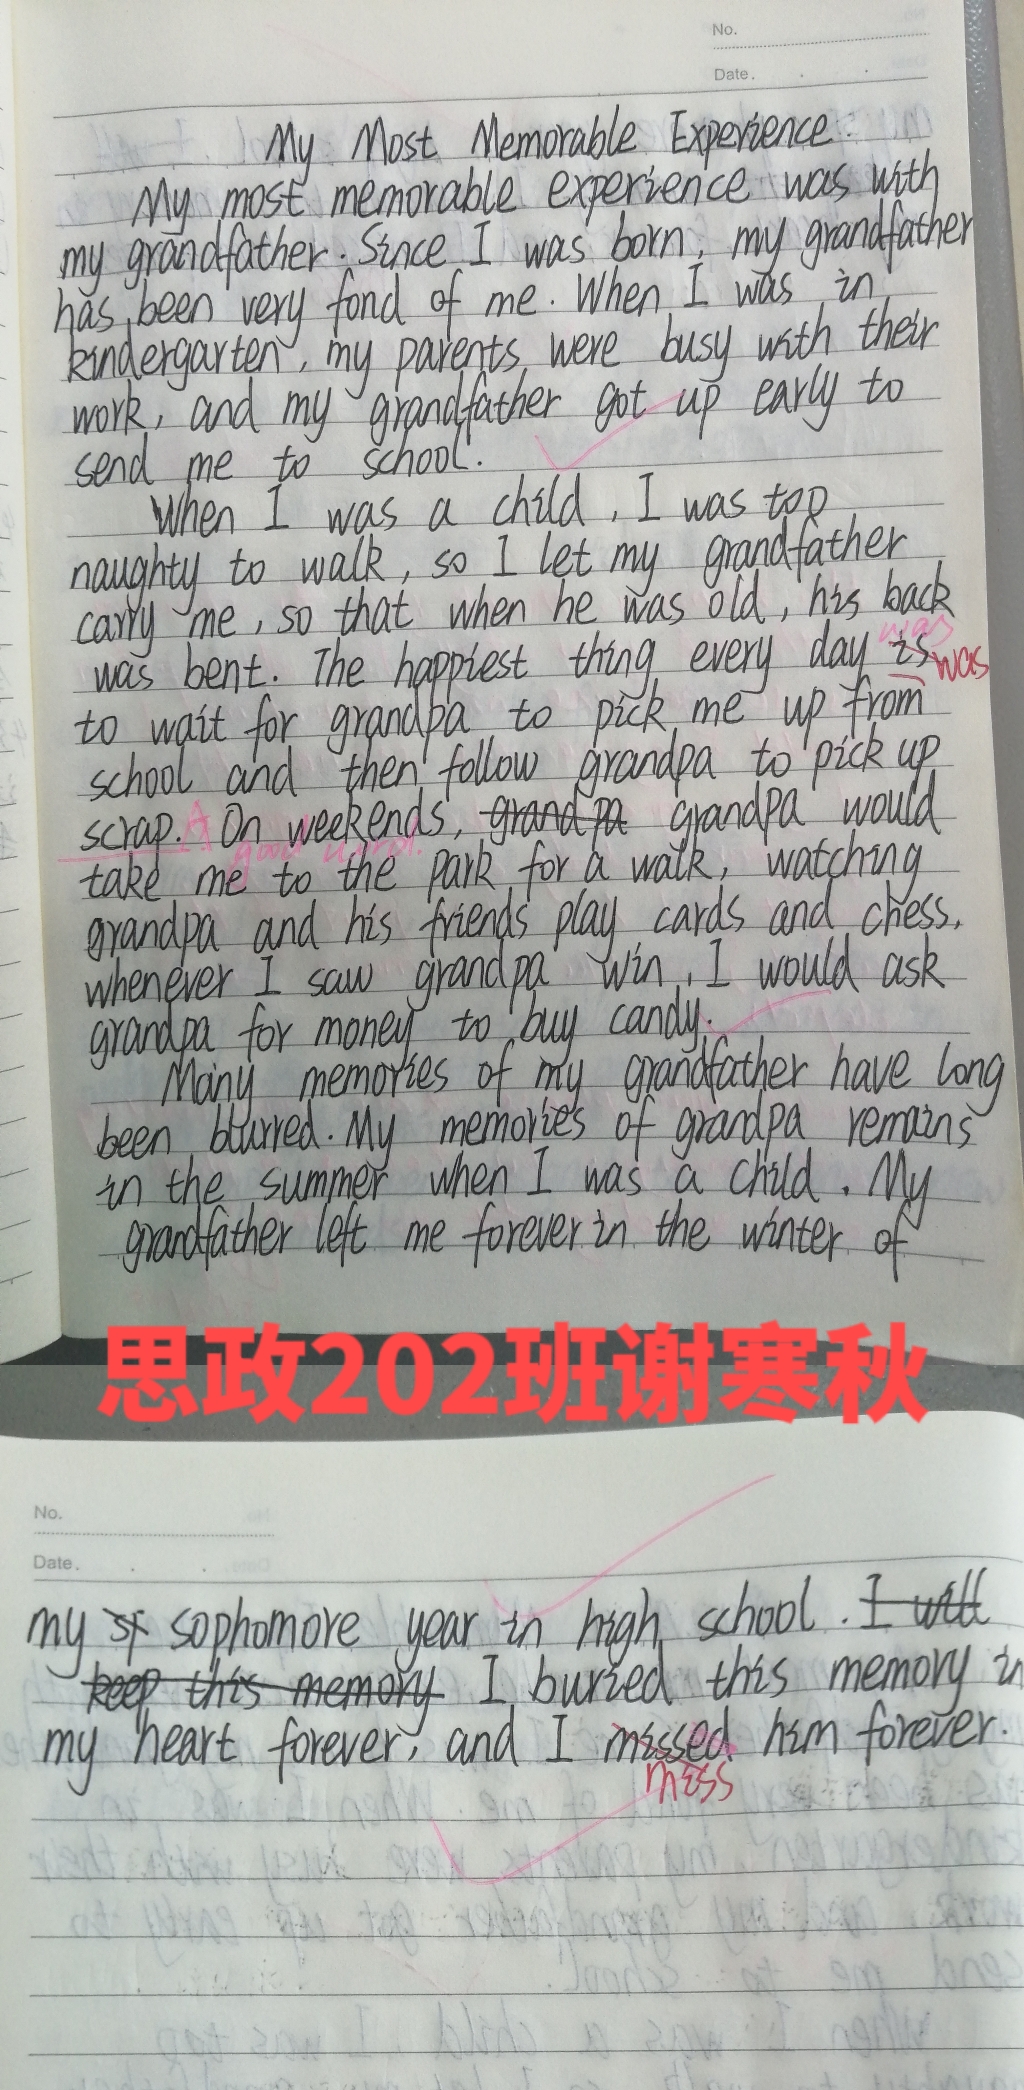 No.
Date.
My Most Memorable Experience.
My most memorable experience was with
my grandfather. Since I was born, my grandfather
has been very fond of me. When I was in
kindergarten, my parents were busy with their
work, and my grandfather got up early to
send me to school.
When I was a child, I was too
naughty to walk, so I let my grandfather
carry me, so that when he was old, his back
was
was bent. The happiest thing every day is was
to wait for grandpa to pick me up from
school and then follow grandpa to pick up
scrap. A On weekends, grandpa grandpa would
good word.
take me to the park for a walk, watching
grandpa and his friends play cards and chess,
whenever I saw grandpa win, I would ask
grandpa for money to buy candy.
Many memories of my grandfather have long
been blurred. My memories of grandpa remains
in the summer when I was a child. My
grandfather left me forever in the winter of
思政202班谢寒秋
No.
Date.
my sophomore year in high school. I will
keep this memory I buried this memory in
my heart forever, and I missed him forever.
miss